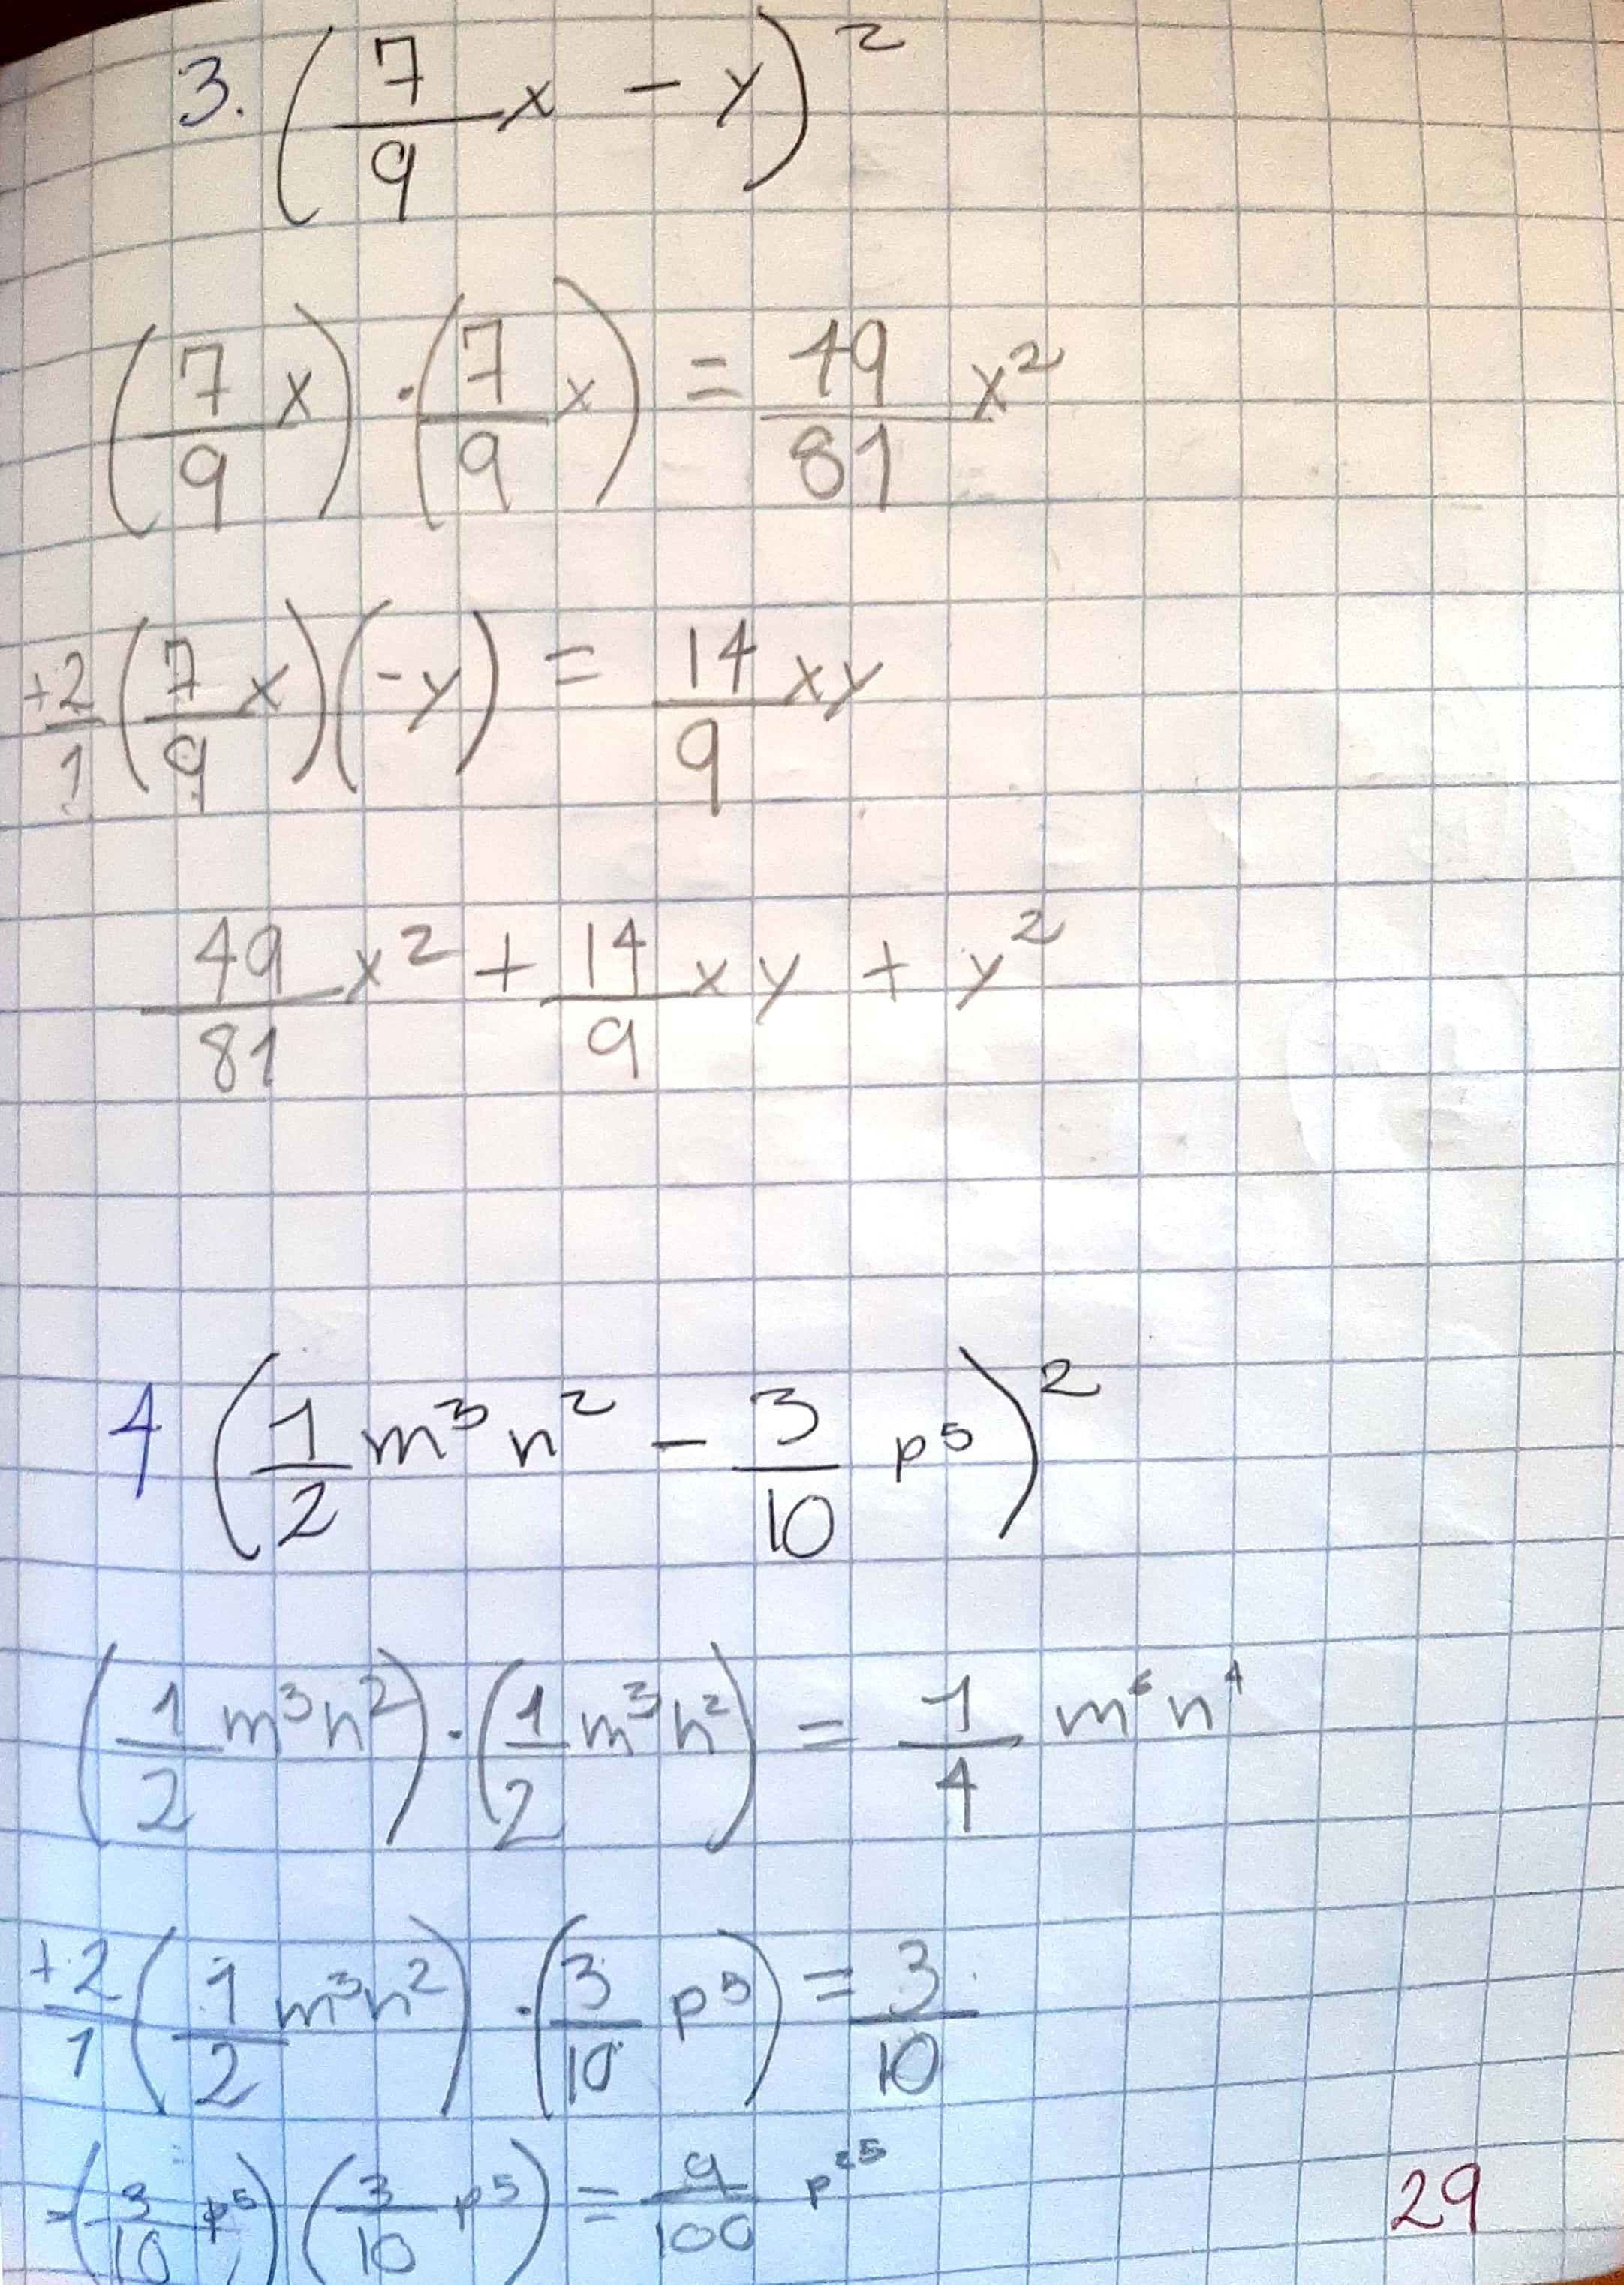 3. (7/9 x - y)²
(7/9 x) · (7/9 x) = 49/81 x²
+2/1 (7/9 x)(-y) = 14/9 xy
49/81 x² + 14/9 xy + y²
4 (1/2 m³ n² - 3/10 p⁵)²
(1/2 m³n²) · (1/2 m³n²) = 1/4 m⁶n⁴
+2/1 (1/2 m³n²) · (3/10 p⁵) = 3/10
-(3/10 p⁵)(3/10 p⁵) = 9/100 p²⁵
29